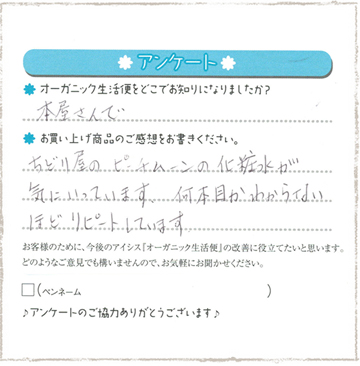 アンケート
オーガニック生活便をどこでお知りになりましたか?
本屋さんで
お買い上げ商品のご感想をお書きください。
ちどり屋のピーチムーンの化粧水が
気にいっています。何本目かわからない
ほどリピートしています
お客様のために、今後のアイシス「オーガニック生活便」の改善に役立てたいと思います。
どのようなご意見でも構いませんので、お気軽にお聞かせください。
□(ペンネーム )
♪アンケートのご協力ありがとうございます♪